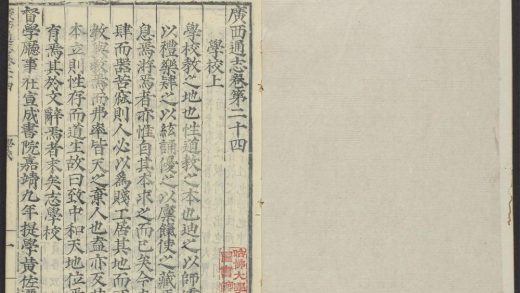 廣西通志卷第二十四
學校上
學校教之地也性道教之本也迪之以師儒
以禮樂肄之以絃誦優之以廩餼使之藏
息焉將焉者亦惟自其本求之而已矣今
肆而器苦窳則人必以為賤工居其地而
教與教焉而弗率皆天之棄人也盍亦反其
本立則性存而道生故曰致中和天地位
育焉其於文辭焉者末矣志學校
督學廳事在宣成書院嘉靖九年提學黃佐